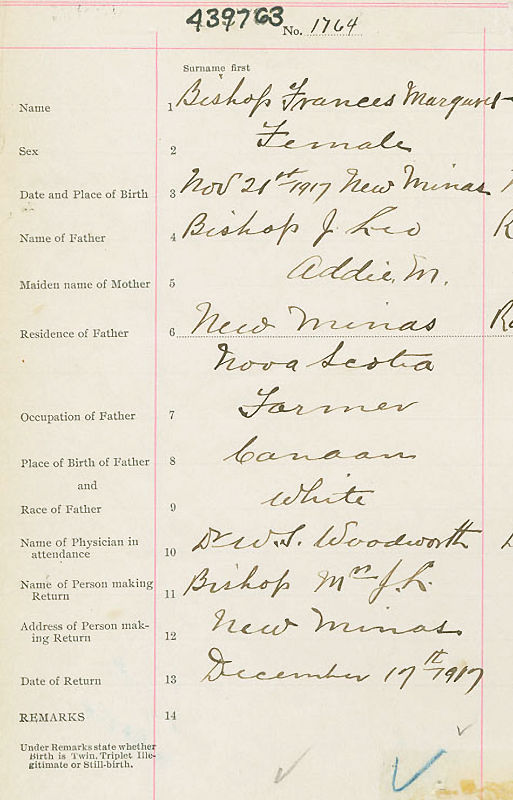 439763
No. 1764
Surname first
Name 1 Bishop Frances Margaret
Sex 2 Female
Date and Place of Birth 3 Nov 21st 1917 New Minas
Name of Father 4 Bishop J. Leo
Maiden name of Mother 5 Addie, M.
Residence of Father 6 New Minas
Nova Scotia
Occupation of Father 7 Farmer
Place of Birth of Father 8 Canaan
and
Race of Father 9 White
Name of Physician in
attendance 10 Dr W. S. Woodworth
Name of Person making
Return 11 Bishop Mrs J. L.
Address of Person mak-
ing Return 12 New Minas
Date of Return 13 December 17th 1917
REMARKS 14
Under Remarks state whether
Birth is Twin, Triplet Ille-
gitimate or Still-birth.